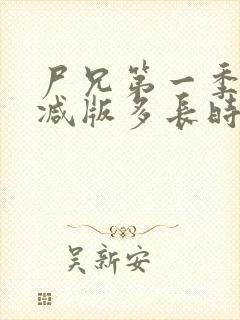 尸兄第一季
减版多長時
吴新安